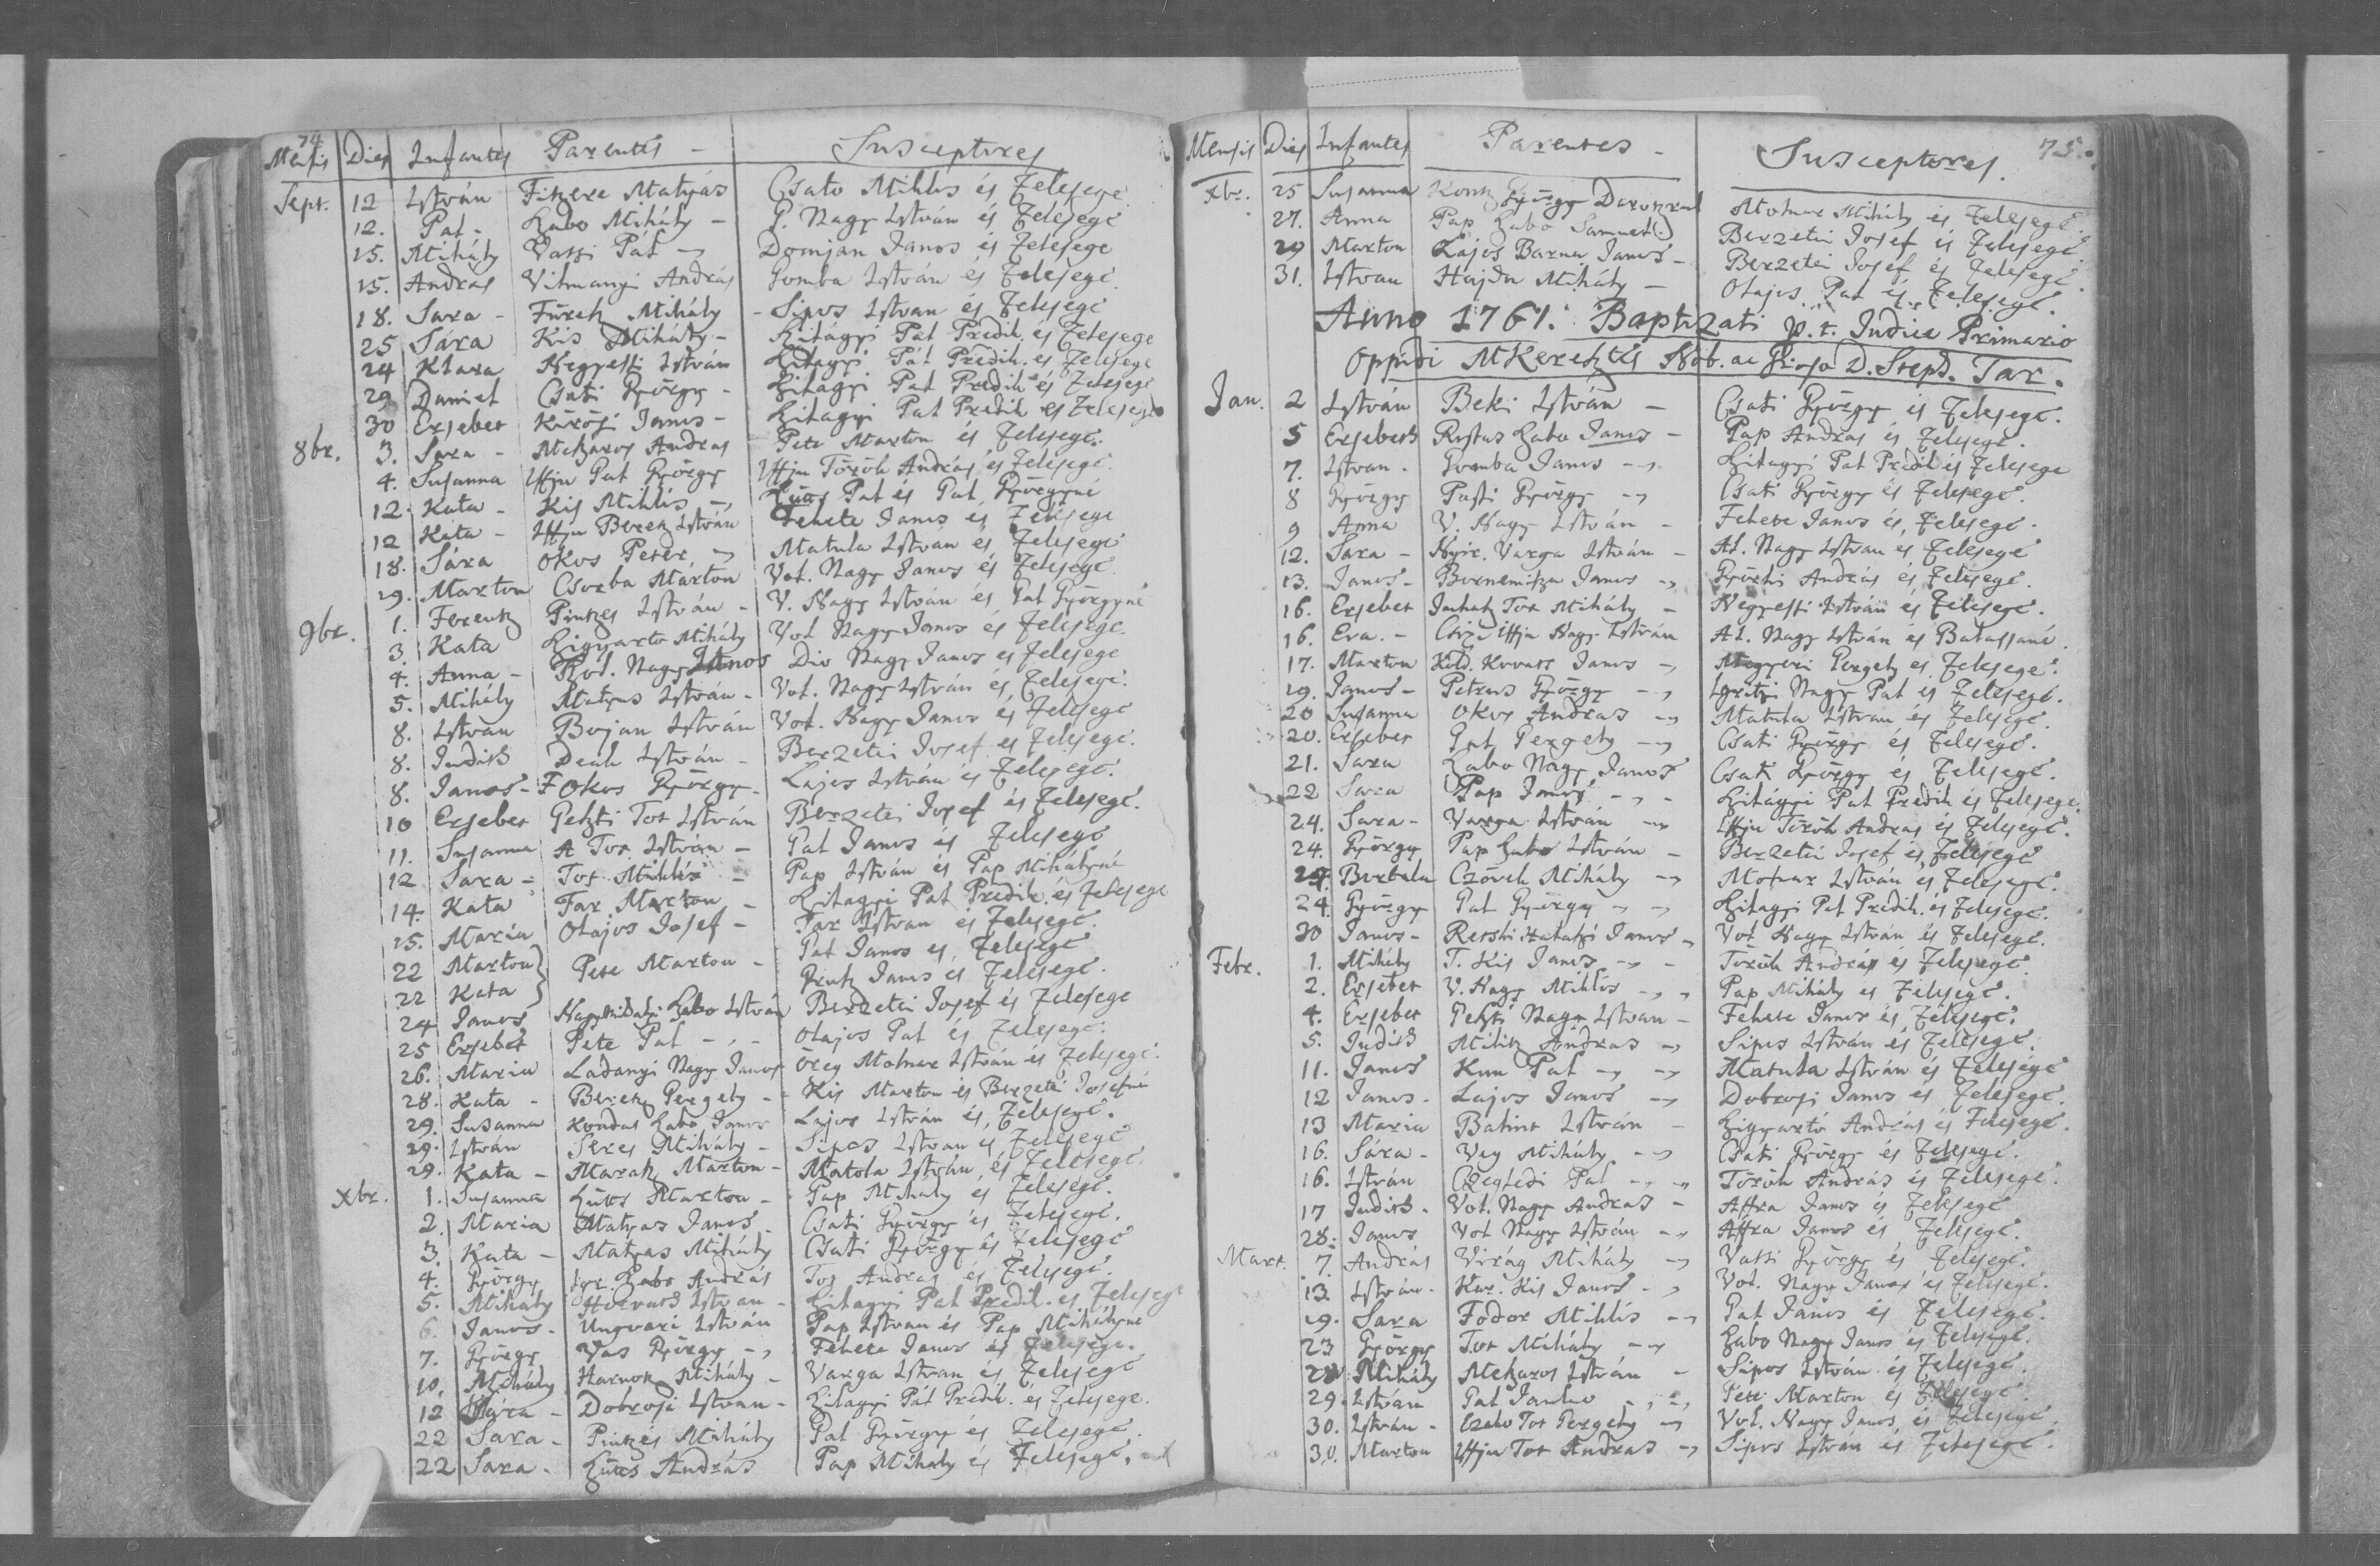 74.
Mensis Dies Infantes Parentes - Susceptores
Sept. 12 István Fitzere Matyás Csato Miklós és Felesege
12. Pal - Szabo Mihály - P. Nagy István és Felesege
15. Mihály Vatzi Pál Domjan Janos és Felesege
15. András Vilmanyi András Gomba István és Felesege
18. Sara - Füreh Mihály - Sipos Istvan és Felesege
25 Sára Kis Mihály - Szilágyi Pál Predik. és Felesege
24 Klara Negyesi István Szilagyi Pál Predik. és Felesege
29 Daniel Csáti György - Szilagyi Pal Predik és Felesege
30 Ersebet Körösi Janos - Szilagyi Pal Predik és Felesege
8br. 3. Sara - Meszaros Andras Pete Marton és Felesege
4. Susanna Iffju Pal György Iffju Török András és Felesege
12. Kata - Kis Miklós Szüts Pal és Pal Györgyné
12 Kata - Iffju Beretz István Fekete Janos és Felesege
18. Sára Okos Peter Matula István és Felesege
29. Marton Csorba Márton Vol. Nagy Janos és Felesege
9br. 1. Ferentz Pintzes István - V. Nagy István és Pal Györgyné
3. Kata Szigyarto Mihály Vol Nagy Janos és Felesege
4. Anna - Vol. Nagy János Dio Nagy Janos és Felesege
5. Mihály Matyus István - Vol. Nagy István és Felesege
8. Istvan Bojan István Vol. Nagy Janos és Felesege
8. Judith Deak István - Berzetei Josef és Felesege
8. Janos - F Okos György - Lajos István és Felesege
10 Ersebet Getzti Tot István Berzetei Josef és Felesege
11. Susanna A Tot István - Pal Janos és Felesege
12 Sara - Tot Miklós - Pap István és Pap Mihályné
14. Kata Tar Marton - Szilagyi Pal Predik. és Felesege
15. Maria Olajos Josef - Tar Istvan és Felesege
22 Marton } Pete Marton - Pal Janos és Felesege
22 Kata } Janos és Felesege
24 Janos Nagymihalyi Szabo István Berzetei Josef és Felesege
25 Ersebet Pete Pal - Olajos Pal és Felesege
26. Maria Ladanyi Nagy Janos Öreg Molnar István és Felesege
28. Kata - Beretz Gergely - Kis Marton és Berzetei Josefné
29. Susanna Kondas Szabo Janos Lajos István és Felesege
29. István Seres Mihály - Sipos Istvan és Felesege
29. Kata - Marah Marton - Matola István és Felesege
xbr. 1. Susanna Szüts Marton - Pap Mihaly és Felesege
2. Maria Matyas Janos - Csati György és Felesege
3. Kata - Matyas Mihály Csati György és Felesege
4. György Igr. Szabo András Tot Andras és Felesege
5. Mihály Horvath Istvan - Szilagyi Pal Predik. és Felesege
6. Janos - Ungvari István Pap Istvan és Pap Mihályné
7. György Vas György Fekete Janos és Felesege
10. Mihály Harnok Mihály - Varga Istvan és Felesege
12 Sára - Dobrosi Istvan - Szilagyi Pál Predik. és Felesege
22 Sara - Pintzes Mihály Pal György és Felesege
22 Sara - Szüts András Pap Mihaly és Felesege
75.
Mensis Dies Infantes Parentes - Susceptores.
xbr. 25 Susanna György Molnar Mihály és Felesege
27. Anna Pap Szabo Samuel Berzetei Josef és Felesege
29 Marton Lajos Barna Janos - Berzetei Josef és Felesege
31. Istvan Hajdu Mihály - Olajos Pal és Felesege.
Anno 1761. Baptizati p. t. Judice Primario
Oppidi MKeresztes Nob. ac D. Steph. Tar.
Jan. 2 István Beki István - Csati György és Felesege.
5 Ersebeth Rostas Szabo Janos - Pap Andras és Felesege.
7. Istvan - Gomba Janos Szilagyi Pal Predik és Felesege
8 György Pasti György Csati György és Felesege.
9 Anna V. Nagy István - Fekete Janos és Felesege.
12. Sara - Nyir. Varga István - Al. Nagy Istvan és Felesege
13. Janos - Bornemisza Janos Györki András és Felesege.
16. Ersebet Juhasz Tot Mihály - Negyesi István és Felesege.
16. Eva. - Csizi Iffju Nagy István Al. Nagy István és Balassané
17. Marton Kold. Kovats Janos Megyeri Gergely és Felesege.
19. Janos - Petrus György Igritzi Nagy Pal és Felesege.
20 Susanna Okos Andras Matula Istvan és Felesege.
20. Ersebet Pal Gergely Csati György és Felesege.
21. Sara Szabo Nagy Janos Csati György és Felesege.
22 Sara Pap Janos Szilágyi Pal Predik és Felesege.
24. Sara - Varga István Iffju Török Andras és Felesege.
24. György Pap Szabo István - Berzetei Josef és Felesege
24. Borbala Czövek Mihály Molnar István és Felesege.
24. György Pal György Szilagyi Pal Predik. és Felesege.
30 Janos - Janos Vol Nagy István és Felesege.
Febr. 1. Mihály T. Kis Janos Török András és Felesege
2. Ersebet V. Nagy Miklós Pap Mihaly és Felesege.
4. Ersebet Getzti Nagy Istvan - Fekete Janos és Felesege.
5. Judith Militz Andras Sipos István és Felesege.
11. Janos Kun Pal Matula István és Felesege
12 Janos. Lajos Janos Dobrosi Janos és Felesege.
13 Maria Balint István - Szigyartó András és Felesege.
16. Sára - Veg Mihály Csati György és Felesege.
16. István Czegledi Pal Török András és Felesege.
17 Judith. Vol. Nagy Andras - Affra Janos és Felesege
28. Janos Vol Nagy István Affra Janos és Felesege.
Mart. 7. András Virág Mihály Vatzi György és Felesege.
13 István - Kur. Kis Janos Vol. Nagy Janos és Felesege.
19. Sara Fodor Miklós Pal Janos és Felesege.
23 György Tot Mihály Szabo Nagy Janos és Felesege.
28. Mihály Meszaros István - Sipos István és Felesege.
29. István Pal Janko Pete Marton és Felesege
30. István - Czako Tot Gergely Vol. Nagy Janos és Felesege
30. Marton Iffju Tot Andras Sipos István és Felesege.